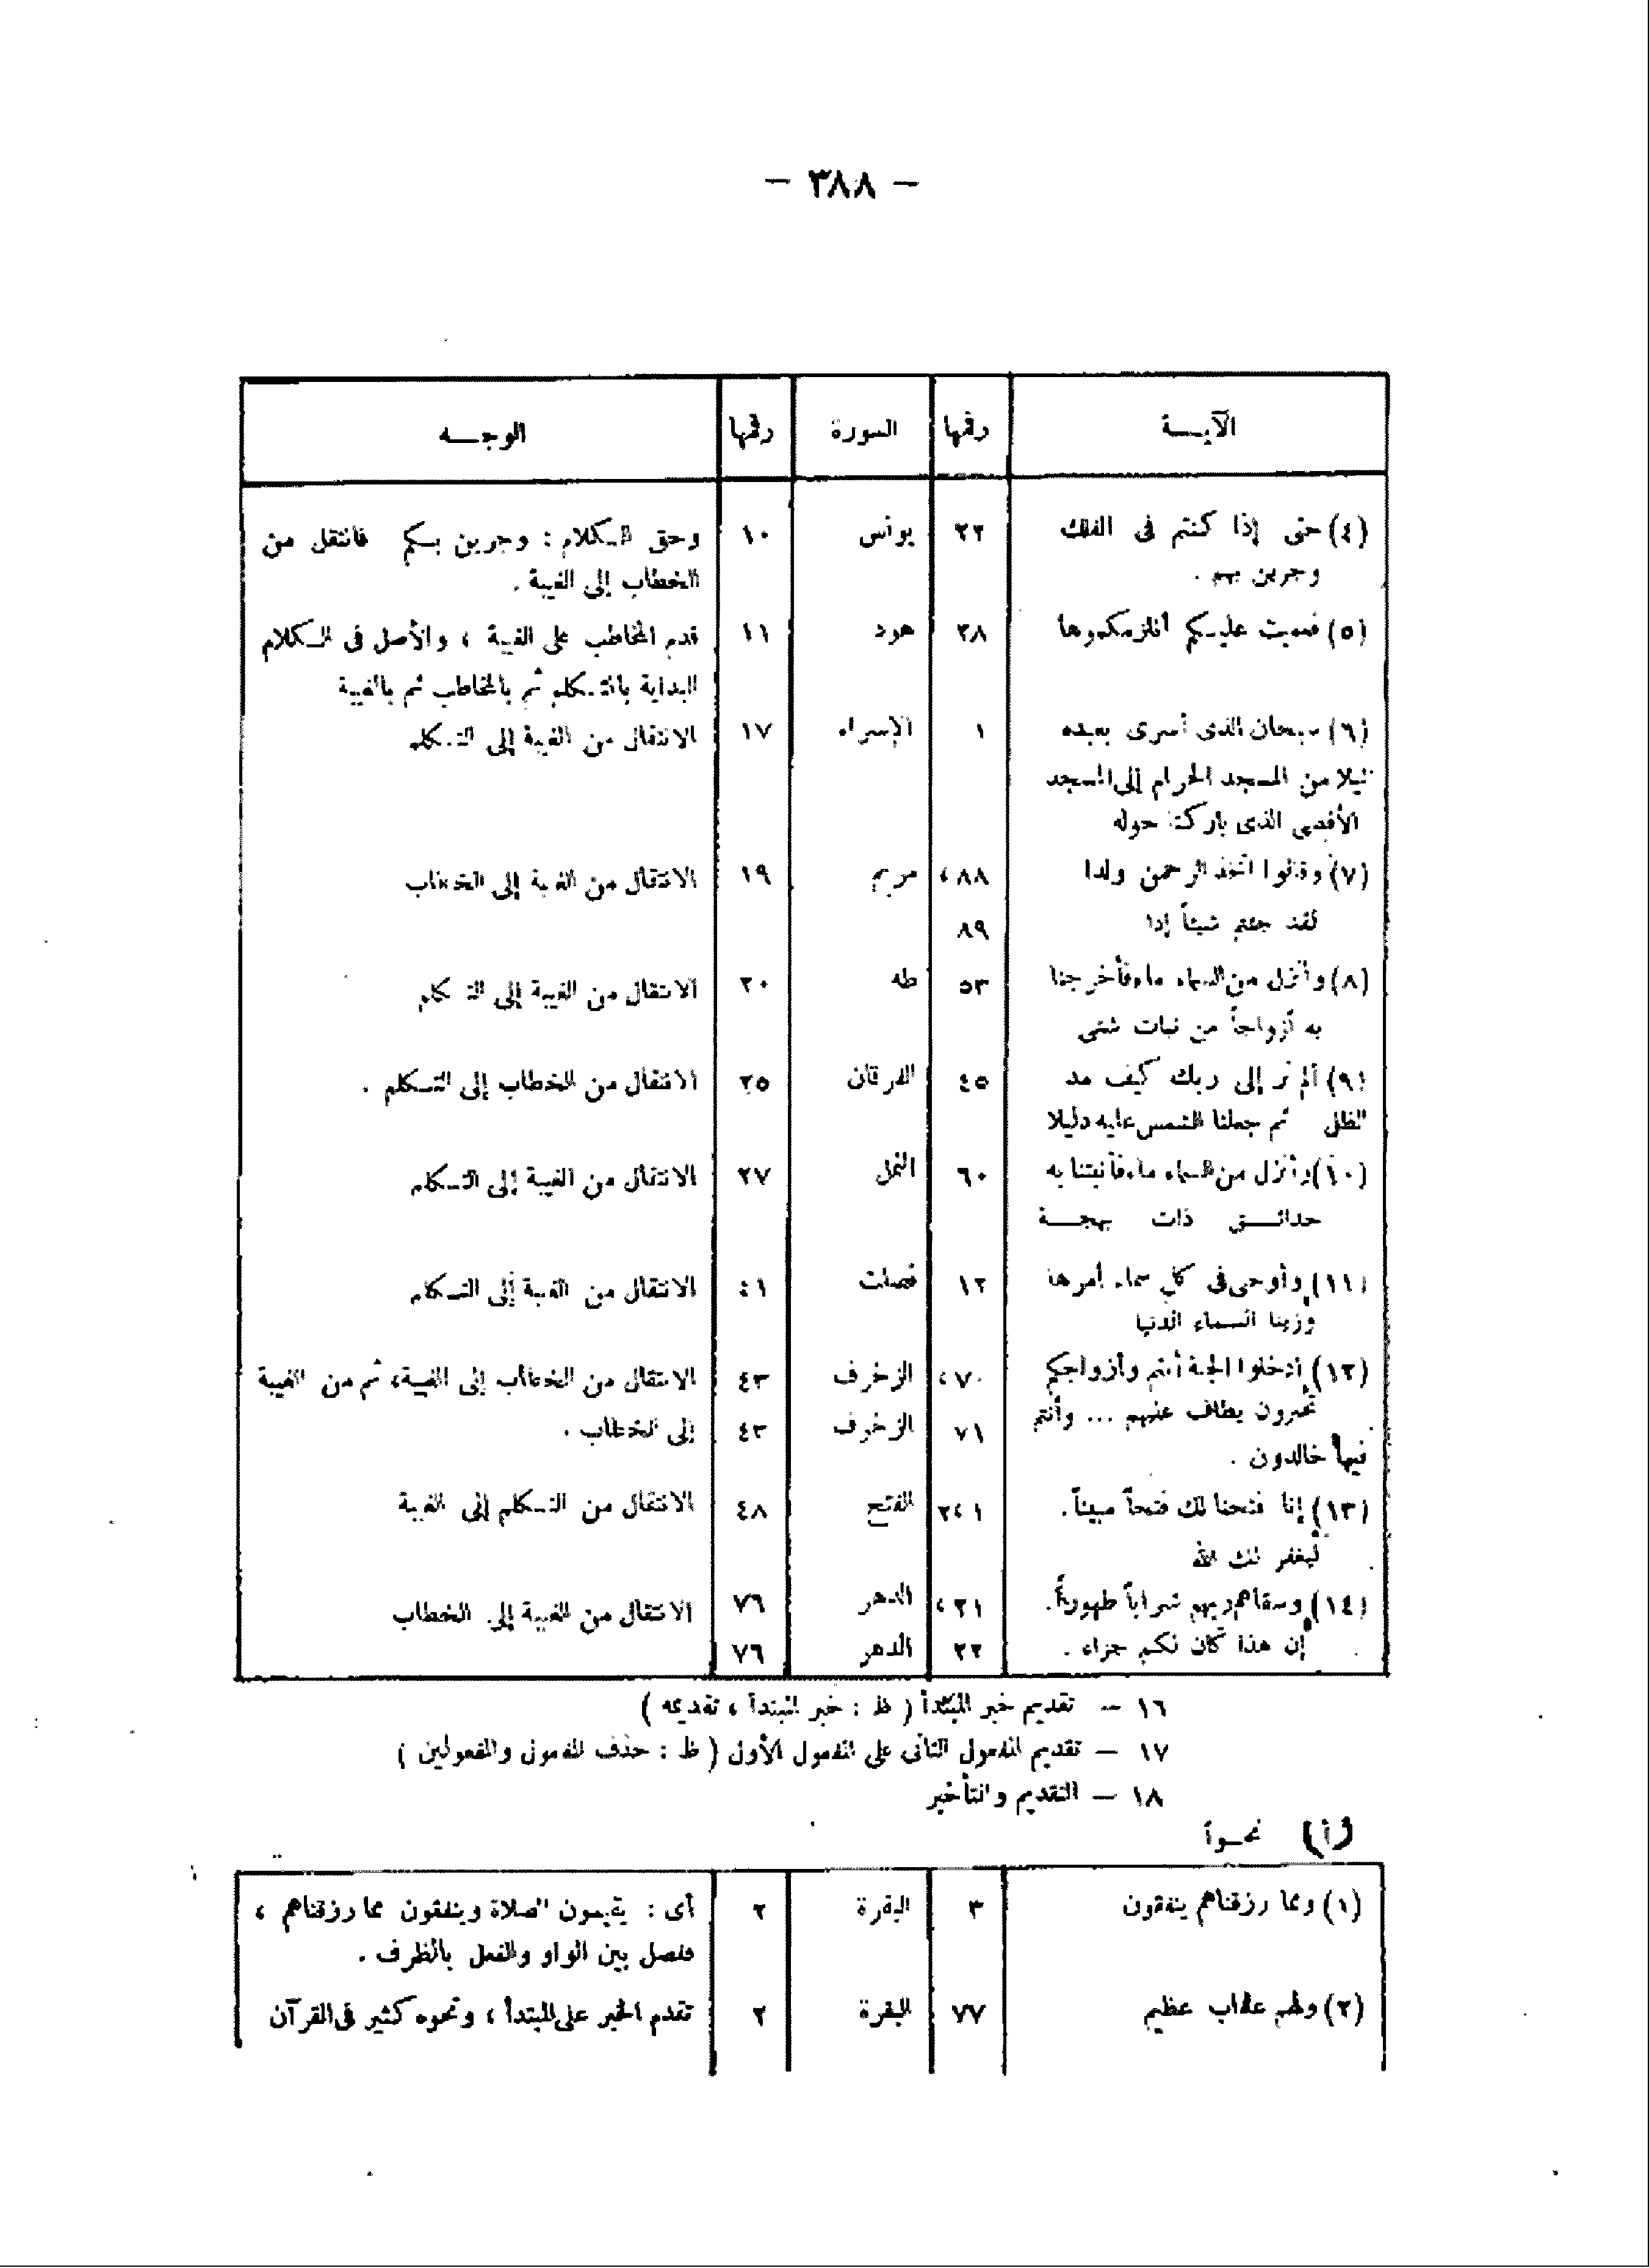 — ٣٨٨ —
الآيـــة رقمها السورة رقمها الوجـــه
(٤) حتى إذا كنتم فى الفلك ٢٢ يونس ١٠ وحق الـكلام : وجرين بـكم فانتقل من
وجرين بهم . الخطاب إلى الغيبة .
(٥) فعميت عليـكم أنلزمكموها ٢٨ هود ١١ قدم المخاطب على الغيبة ، والأصل فى الـكلام
البداية بالتـكلم ثم بالمخاطب ثم بالغيبة
(٦) سبحان الذى أسرى بعبده ١ الإسراء ١٧ الانتقال من الغيبة إلى التـكلم
ليلا من المسجد الحرام إلى المسجد
الأقصى الذى باركنا حوله
(٧) وقالوا اتخذ الرحمن ولدا ٨٨، مريم ١٩ الانتقال من الغيبة إلى الخطاب
لقد جئتم شيئاً إدا ٨٩
(٨) وأنزل من السماء ماء فأخرجنا ٥٣ طه ٢٠ الانتقال من الغيبة إلى التـكلم
به أزواجاً من نبات شتى
(٩) ألم تر إلى ربك كيف مد ٤٥ الفرقان ٢٥ الانتقال من الخطاب إلى التـكلم .
الظل ثم جعلنا الشمس عليه دليلا
(١٠) وأنزل من السماء ماء فأنبتنا به ٦٠ النمل ٢٧ الانتقال من الغيبة إلى التـكلم
حدائـــق ذات بهجـــة
(١١) وأوحى فى كل سماء أمرها ١٢ فصلت ٤١ الانتقال من الغيبة إلى التـكلم
وزينا السماء الدنيا
(١٢) ادخلوا الجنة أنتم وأزواجكم ٧٠، الزخرف ٤٣ الانتقال من الخطاب إلى الغيبة، ثم من الغيبة
تحبرون يطاف عليهم ... وأنتم ٧١ الزخرف ٤٣ إلى الخطاب .
فيها خالدون .
(١٣) إنا فتحنا لك فتحاً مبيناً . ١،٢ الفتح ٤٨ الانتقال من التـكلم إلى الغيبة
ليغفر لك الله
(١٤) وسقاهم ربهم شراباً طهوراً . ٢١، الدهر ٧٦ الانتقال من الغيبة إلى الخطاب
إن هذا كان لكم جزاء . ٢٢ الدهر ٧٦
١٦ — تقديم خبر المبتدأ ( ظ : خبر المبتدأ ، تقديمه )
١٧ — تقديم المفعول الثانى على المفعول الأول ( ظ : حذف المفعول والمفعولين )
١٨ — التقديم والتأخير
(أ) نحـواً
(١) ومما رزقناهم ينفقون ٣ البقرة ٢ أى : يقيمون الصلاة وينفقون مما رزقناهم ،
ففصل بين الواو والفعل بالظرف .
(٢) ولهم عذاب عظيم ٧٧ البقرة ٢ تقدم الخبر على المبتدأ ، ونحوه كثير فى القرآن